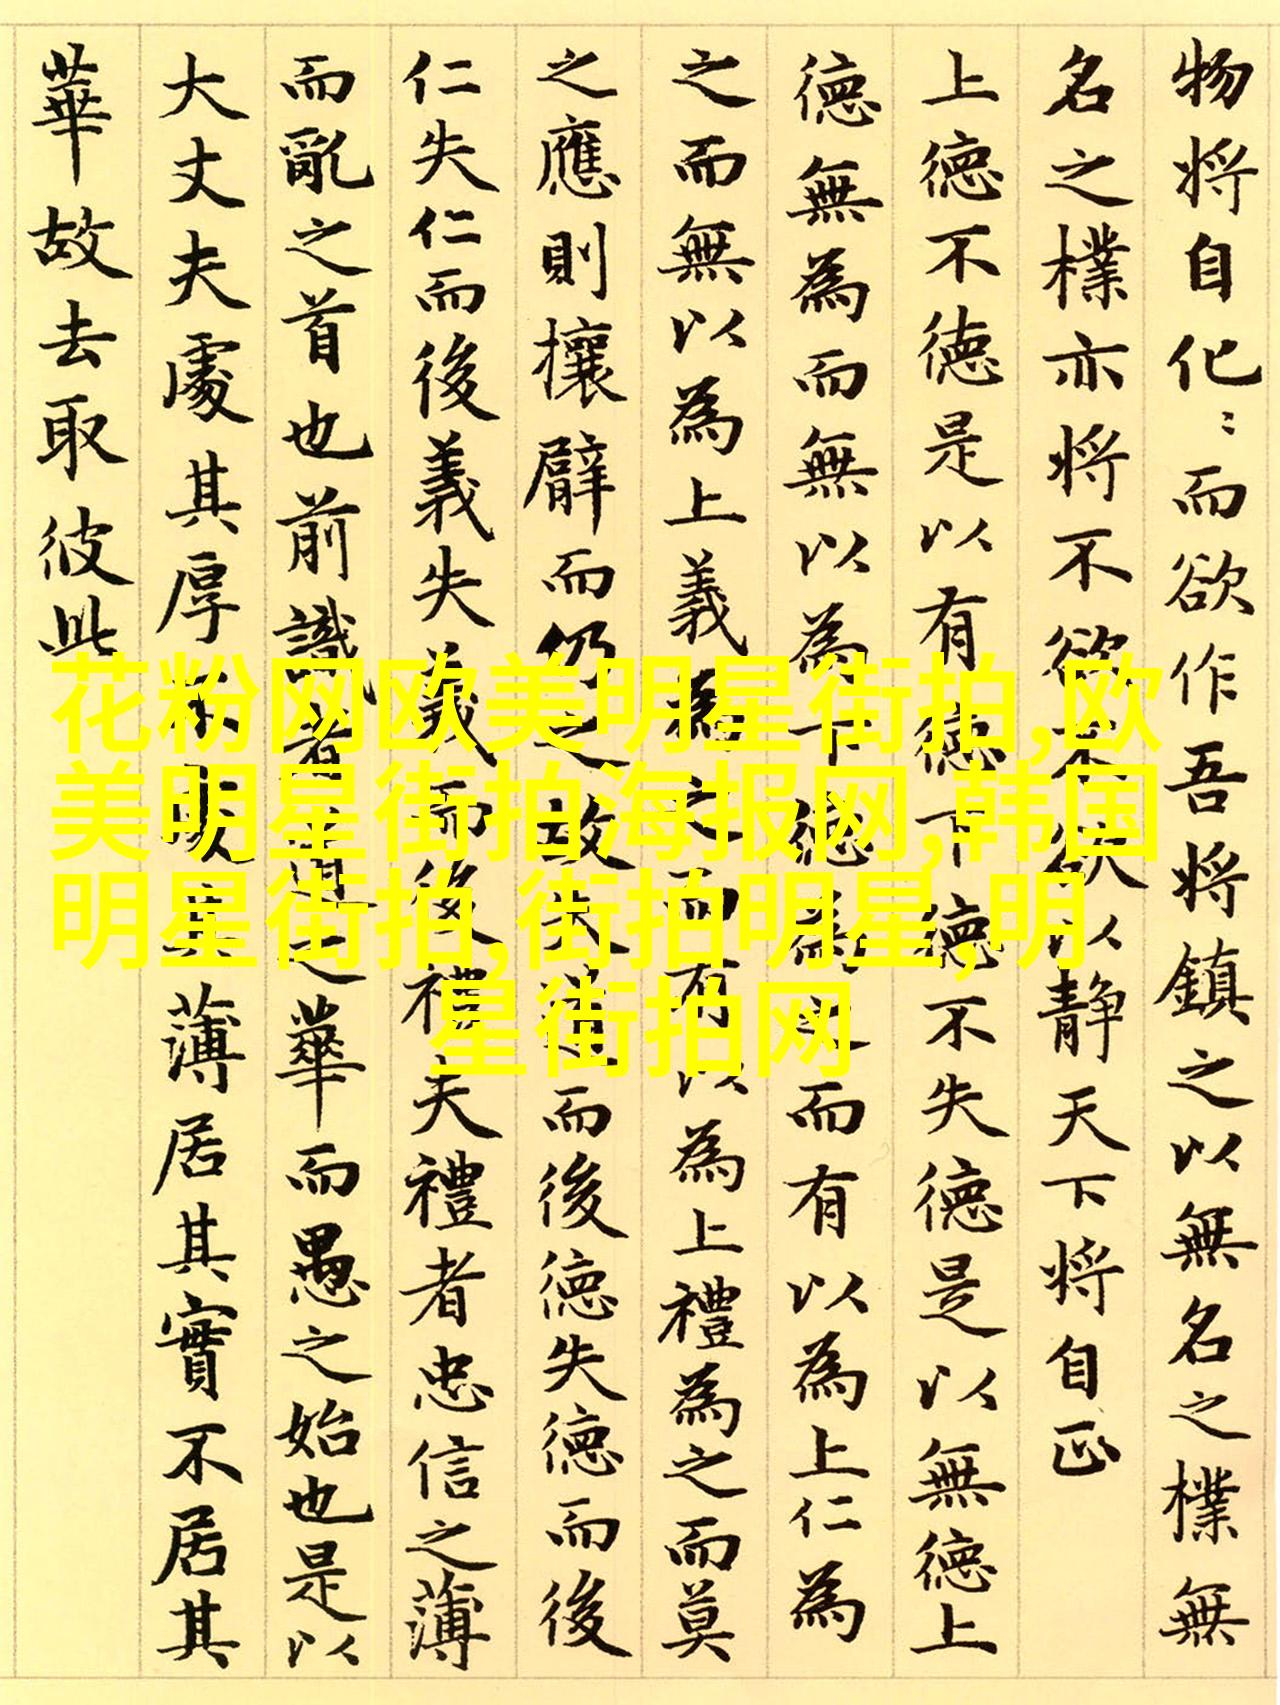 物將自化〻而欲作吾將鎮之以無名之樸無
名之樸亦將不欲不欲以静天下將自正
上德不德是以有德下德不失德是以無德上
德無為而無以為下德為之而有以為上仁為
之而無以為上義為之而有以為上禮為之而莫
之應則攘臂而仍之故失道而後德失德而後
仁失仁而後義失義而後禮夫禮者忠信之薄
而亂之首也前識者道之華而愚之始也是以
大丈夫處其厚不處其薄居其實不居其
華故去取彼此
花粉网欧美明星街拍,欧
美明星街拍海报网,韩国
明星街拍,街拍明星,明
星街拍网